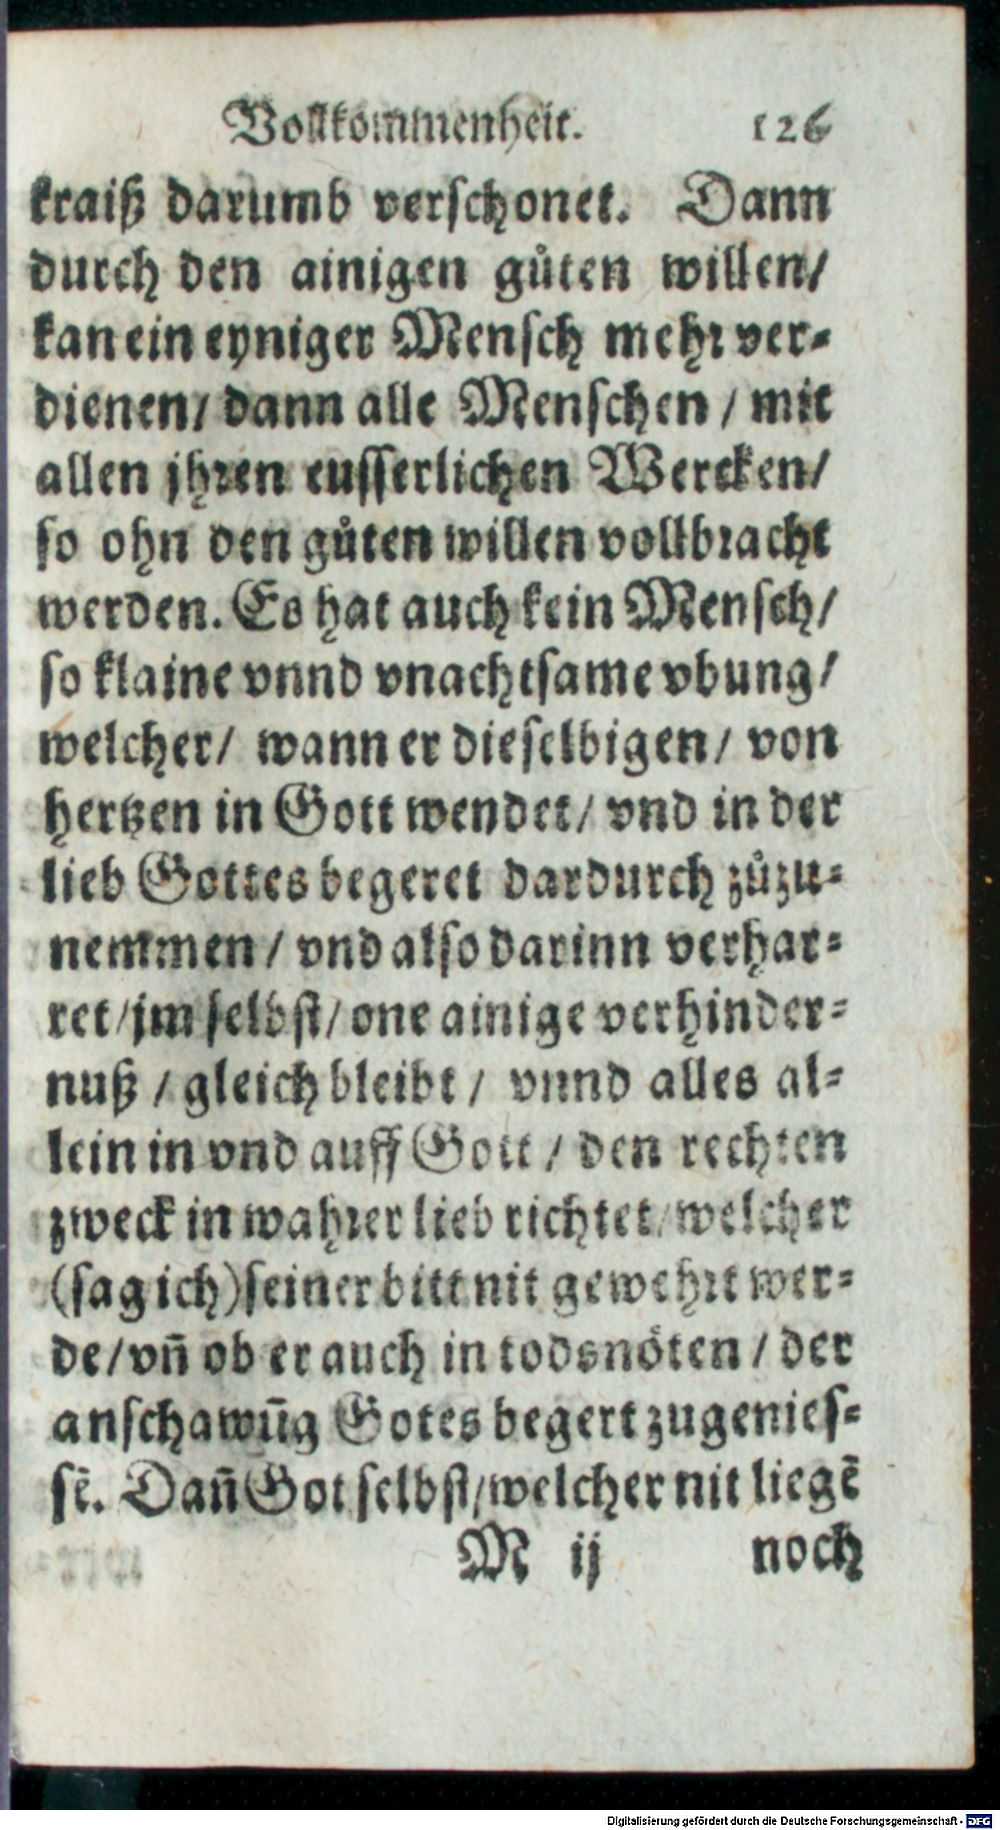 Vollkommenheit. 126
kraiß darumb verschonet. Dann
durch den ainigen gůten willen/
kan ein eyniger Mensch mehr ver-
dienen/ dann alle Menschen / mit
allen jhren eusserlichen Wercken/
so ohn den gůten willen vollbracht
werden. Es hat auch kein Mensch/
so klaine vnnd vnachtsame vbung/
welcher/ wann er dieselbigen/ von
hertzen in Gott wendet/ vnd in der
lieb Gottes begeret dardurch zůzu-
nemmen / vnd also darinn verhar-
ret/jm selbst/ one ainige verhinder-
nuß / gleich bleibt / vnnd alles al-
lein in vnd auff Gott / den rechten
zweck in wahrer lieb richtet/welcher
(sag ich) seiner bitt nit gewehrt wer-
de/vn̄ ob er auch in todsnöten / der
anschawūg Gotes begert zugenies-
sē. Dan̄ Got selbst/welcher nit liegē
M ij noch
Digitalisierung gefördert durch die Deutsche Forschungsgemeinschaft - DFG